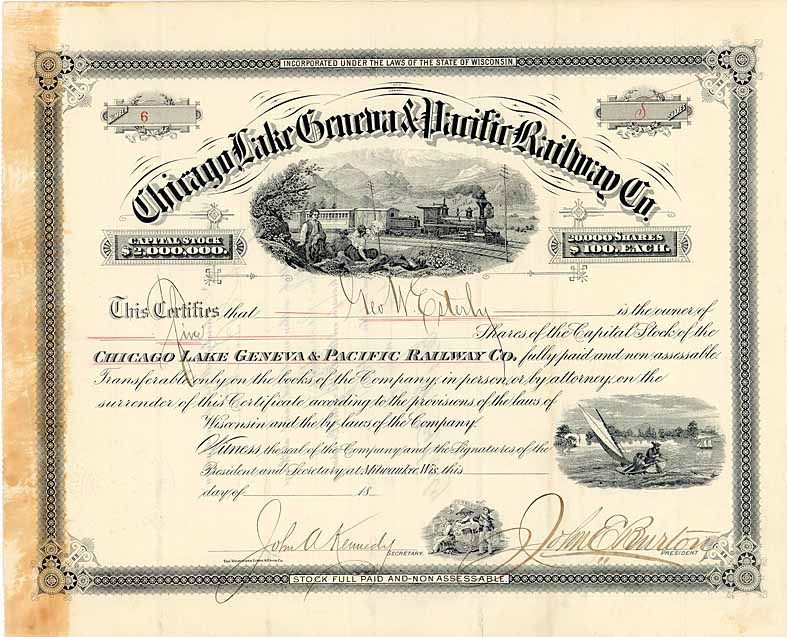 INCORPORATED UNDER THE LAWS OF THE STATE OF WISCONSIN.
NUMBER 6
5 SHARES
Chicago Lake Geneva & Pacific Railway Co.
CAPITAL STOCK
$2,000,000.
20,000 SHARES
$100. EACH.
This Certifies that Geo W. Esterly is the owner of
Five Shares of the Capital Stock of the
CHICAGO LAKE GENEVA & PACIFIC RAILWAY CO., fully paid and non assessable.
Transferable only on the books of the Company, in person, or by attorney, on the
surrender of this Certificate according to the provisions of the laws of
Wisconsin and the by-laws of the Company.
Witness, the seal of the Company and the Signatures of the
President and Secretary at Milwaukee, Wis. this
day of 18
John A Kennedy SECRETARY.
John E Burton PRESIDENT
STOCK FULL PAID AND NON ASSESSABLE.